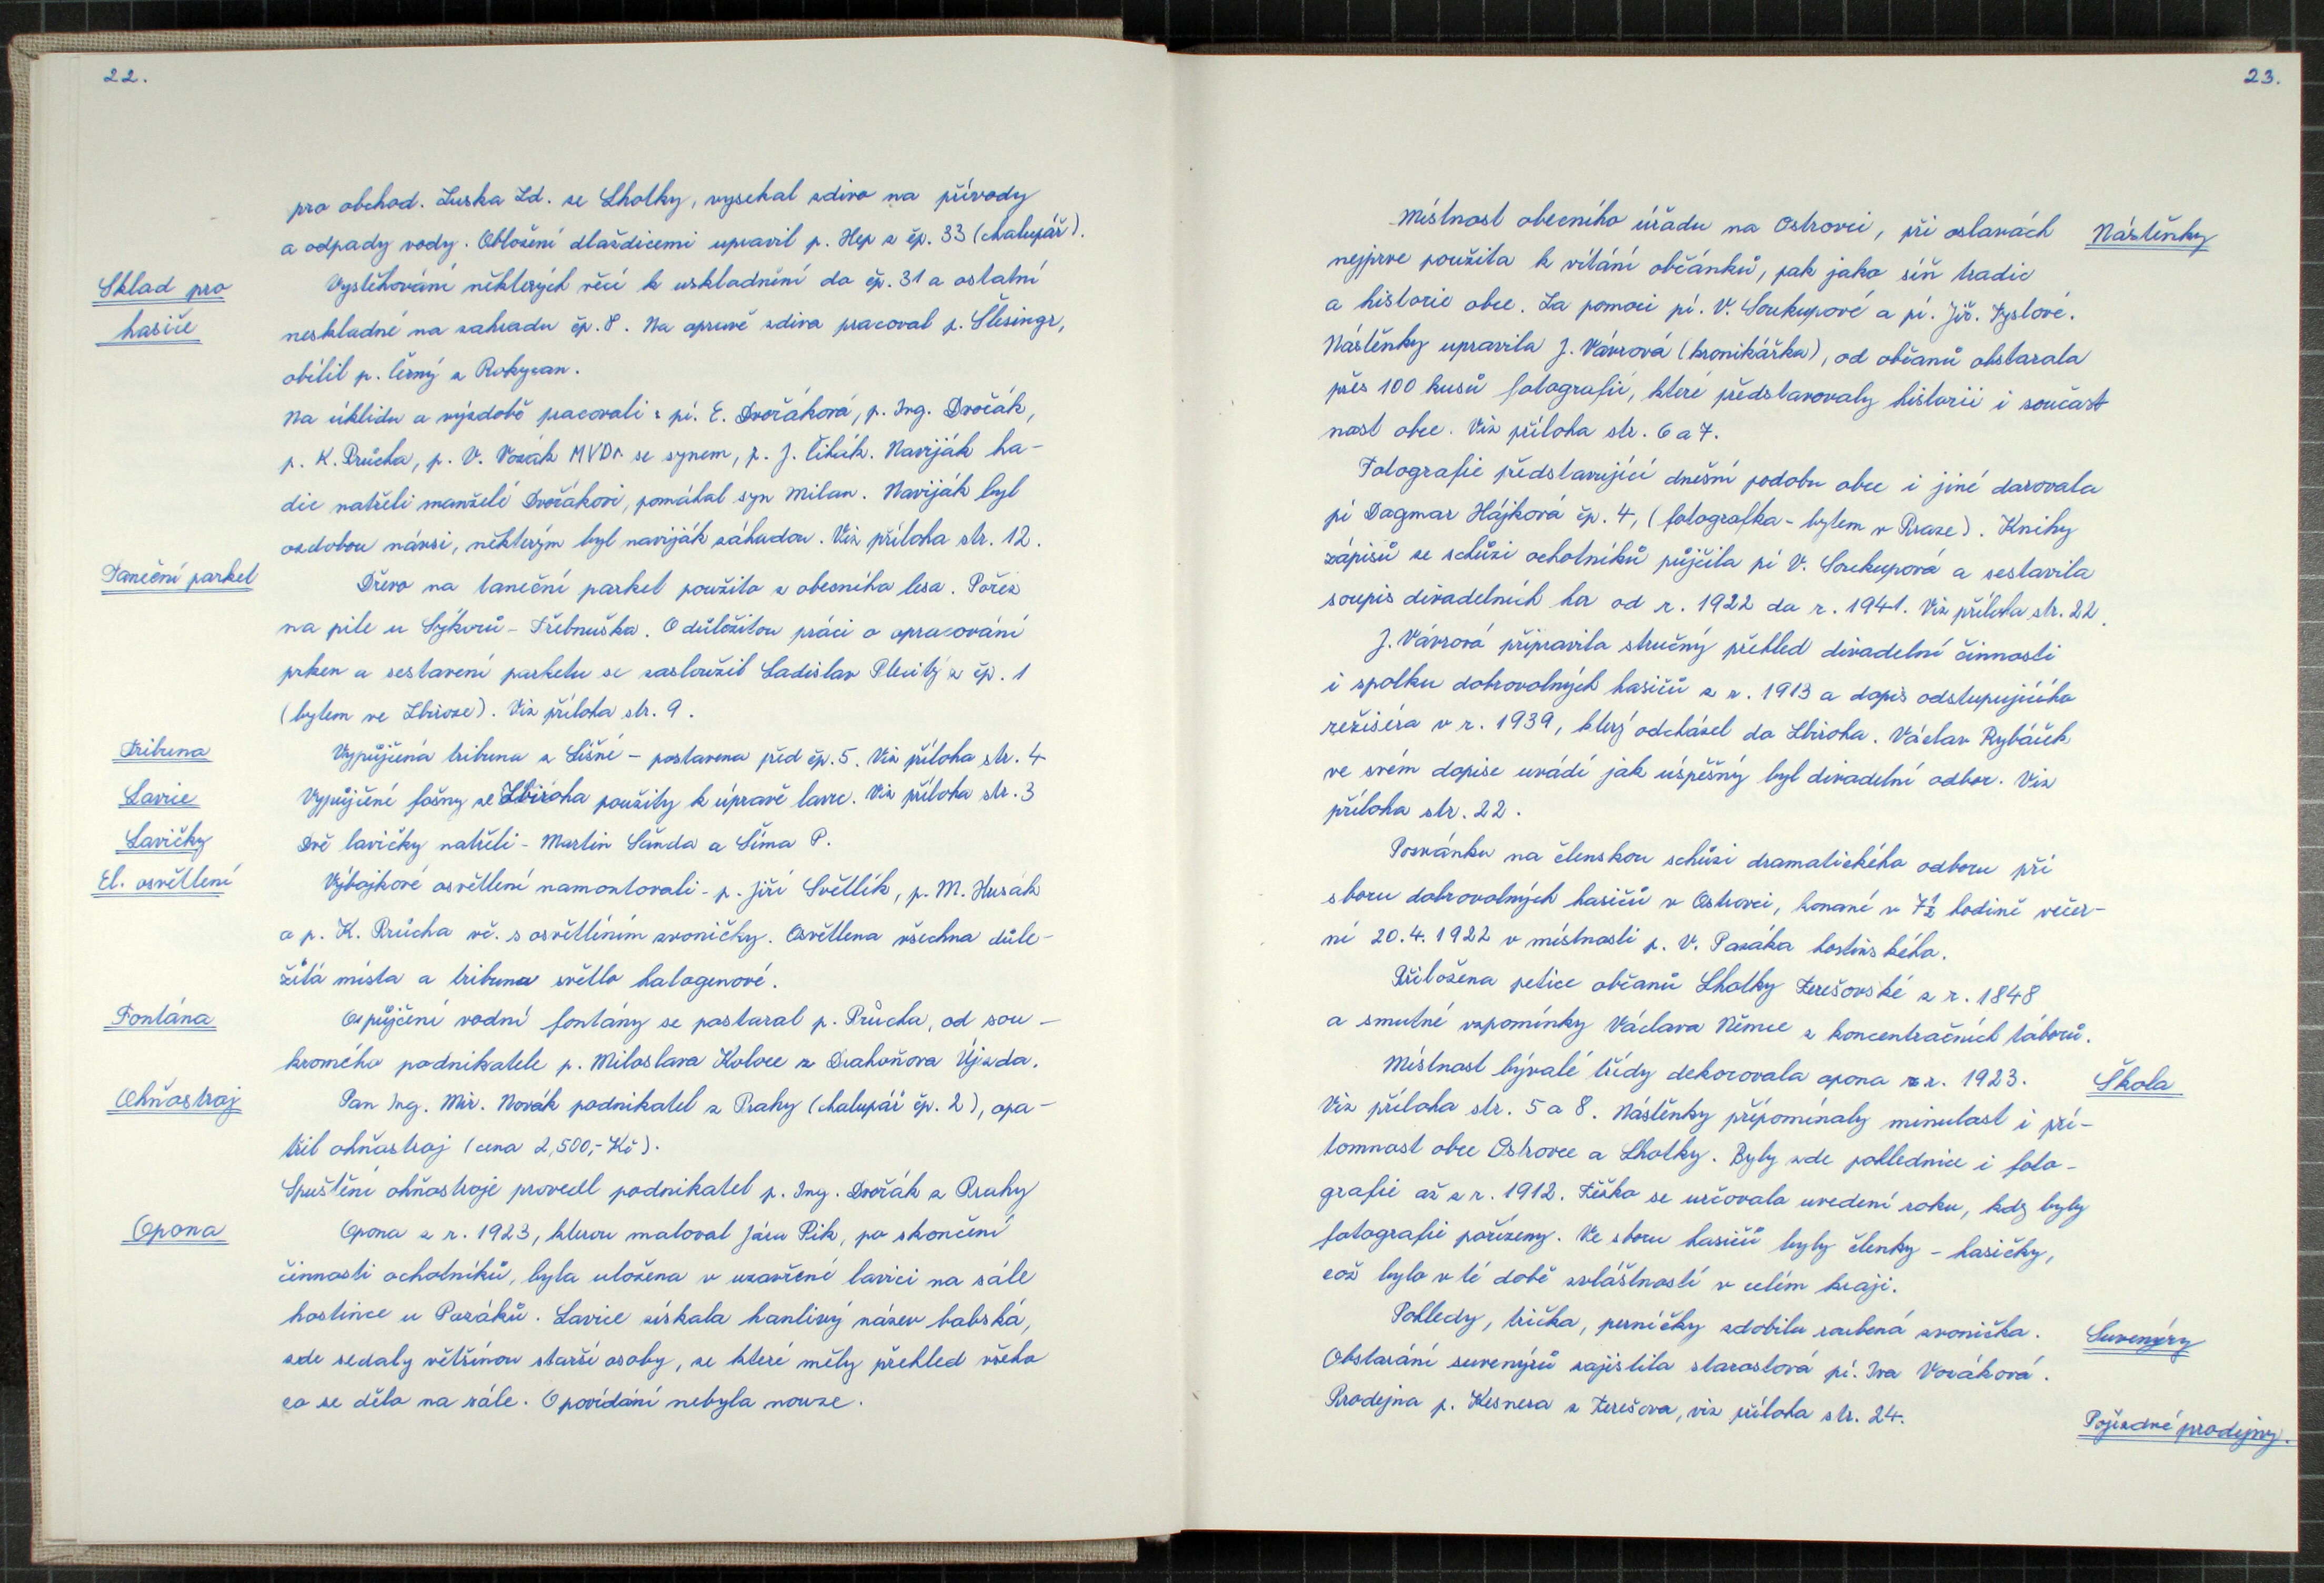 22.
pro obchod. Luska Zd. ze Lhotky, vysekal zdivo na přívody
a odpady vody. Obložení dlaždicemi upravil p. Hep z čp. 33 (chalupář).
Sklad pro
hasiče
Vystěhování některých věcí k uskladnění do čp. 31 a ostatní
neskladné na zahradu čp. 8. Na opravě zdiva pracoval p. Šlesingr,
obílil p. Černý z Rokycan.
Na úklidu a výzdobě pracovali: pí. E. Dvořáková, p. Ing. Dvořák,
p. K. Průcha, p. V. Vozák MVDr se synem, p. J. Cibák. Naviják ha-
dic natřeli manželé Dvořákovi, pomáhal syn Milan. Naviják byl
ozdobou návsi, některým byl naviják záhadou. Viz příloha str. 12.
Taneční parket
Dřevo na taneční parket použito z obecního lesa. Pořez
na pile u Sýkorů - Třebnuška. O důležitou práci o opracování
prken a sestavení parketu se zasloužil Ladislav Plevitý z čp. 1
(bytem ve Zbiroze). Viz příloha str. 9.
Tribuna
Vypůjčená tribuna z Líšné - postavena před čp. 5. Viz příloha str. 4
Lavice
Vypůjčené fošny ze Zbiroha použity k úpravě lavic. Viz příloha str. 3
Lavičky
Dvě lavičky natřeli - Martin Šanda a Šíma P.
El. osvětlení
Výbojkové osvětlení namontovali - p. Jiří Světlík, p. M. Husák
a p. K. Průcha vč. s osvětlením zvoničky. Osvětlena všechna důle-
žitá místa a tribuna světlo halogenové.
Fontána
O způjčení vodní fontány se postaral p. Průcha, od sou-
kromého podnikatele p. Miloslava Kolvce z Drahoňova Újezda.
Ohňostroj
Pan Ing. Mir. Novák podnikatel z Prahy (chalupář čp. 2), opa-
třil ohňostroj (cena 2,500,- Kč).
Spuštění ohňostroje provedl podnikatel p. Ing. Dvořák z Prahy
Opona
Opona z r. 1923, kterou maloval Jára Pik, po skončení
činnosti ochotníků, byla uložena v uzavřené lavici na sále
hostince u Pazáků. Lavice získala hanlivý název babská,
zde sedaly většinou starší osoby, ze které měly přehled všeho
co se dělo na sále. O povídání nebyla nouze.
23.
Nástěnky
Místnost obecního úřadu na Ostrovci, při oslavách
nejprve použita k vítání občánků, pak jako síň tradic
a historie obce. Za pomoci pí. V. Soukupové a pí. Jiř. Tyslové.
Nástěnky upravila J. Vávrová (kronikářka), od občanů obstarala
přes 100 kusů fotografií, které představovaly historii i součast
nost obce. Viz příloha str. 6 a 7.
Fotografie představující dnešní podobu obce i jiné darovala
pí Dagmar Hájková čp. 4, (fotografka - bytem v Praze). Knihy
zápisů ze schůzí ochotníků půjčila pí V. Soukupová a sestavila
soupis divadelních her od r. 1922 do r. 1941. Viz příloha str. 22.
J. Vávrová připravila stručný přehled divadelní činnosti
i spolku dobrovolných hasičů z r. 1913 a dopis odstupujícího
režiséra v r. 1939, který odcházel do Zbiroha. Václav Rybáček
ve svém dopise uvádí jak úspěšný byl divadelní odbor. Viz
příloha str. 22.
Pozvánku na členskou schůzi dramatického odboru při
sboru dobrovolných hasičů v Ostrovci, konané v 7½ hodině večer-
ní 20.4.1922 v místnosti p. V. Pazáka hostinského.
Přiložena petice občanů Lhotky Terešovské z r. 1848
a smutné vzpomínky Václava Němce z koncentračních táborů.
Škola
Místnost bývalé třídy dekorovala opona z r. 1923.
Viz příloha str. 5 a 8. Nástěnky připomínaly minulost i pří-
tomnost obce Ostrovce a Lhotky. Byly zde pohlednice i foto-
grafie až z r. 1912. Těžko se určovalo uvedení roku, kdy byly
fotografie pořízeny. Ve sboru hasičů byly členky - hasičky,
což bylo v té době zvláštností v celém kraji.
Suvenýry
Pohledy, trička, perníčky zdobila roubená zvonička.
Obstarání suvenýrů zajistila starostová pí. Iva Vozáková.
Pojízdné prodejny.
Prodejna p. Kesnera z Terešova, viz příloha str. 24.